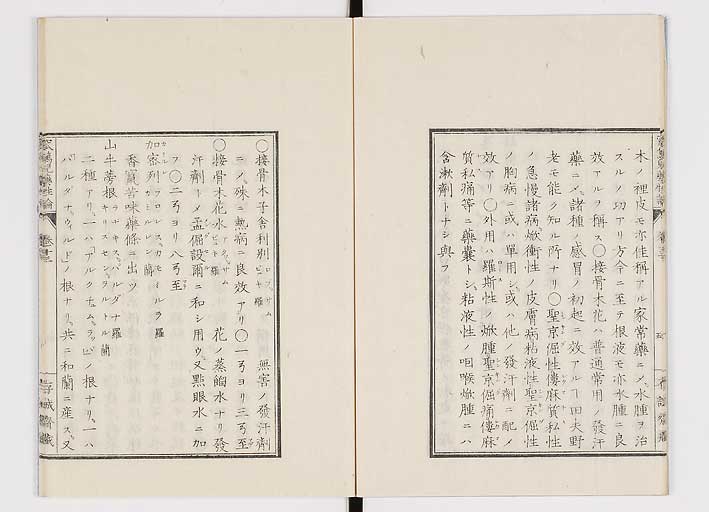 木ノ裡皮モ亦佳称アル家常藥ニメ水腫ヲ治
スルノ功アリ方今ニ至テ根液モ亦水腫ニ良
效アルヲ稱ス〇接骨木花ハ普通常用ノ發汗
藥ニメ諸種ノ感冒ノ初起ニ效アルヿ田夫野
老モ能ク知ル所ナリ〇聖京倔性僂麻質私性
ノ急慢諸病焮衝性ノ皮膚病粘液性聖京倔性
ノ胸病ニ或ハ單用シ或ハ他ノ發汗劑ニ配メ
效アリ〇外用ハ羅斯性ノ焮腫聖京倔痛僂麻
質私痛等ニ藥囊トシ粘液性ノ咽喉焮腫ニハ
含漱劑トナシ與フ
〇接骨木子舎利別 無害ノ發汗劑
ニメ殊ニ熱病ニ良效アリ〇一弓ヨリ三弓至
〇接骨木花水 花ノ蒸餾水ナリ發
汗劑トメ孟倔設爾ニ和シ用ウ又點眼水ニ加
フ〇二弓ヨリ八弓至
加密列 フロレス、カモミルラ 羅
香竄苦味藥條ニ出ツ
山牛蒡根 ラデキス、バルダナ 羅 キリスセンウヲルトル 蘭
二種アリ一ハアルクチュム、ラッパノ根ナリ一ハ
バルダナ、ウィルドノ根ナリ共ニ和蘭ニ産ス又